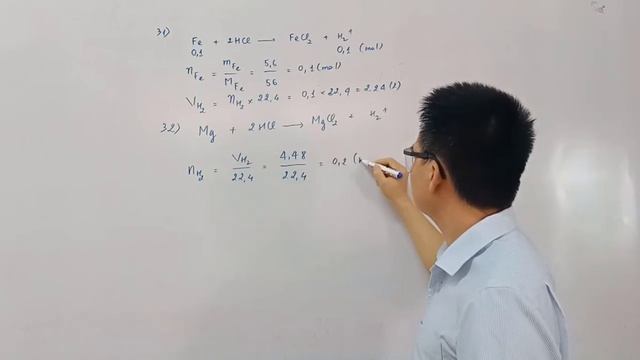 31)
Fe + 2HCl → FeCl₂ + H₂↑
0,1 0,1 (mol)
n_Fe = m_Fe / M_Fe = 5,6 / 56 = 0,1 (mol)
V_H₂ = n_H₂ × 22,4 = 0,1 × 22,4 = 2,24 (l)
32) Mg + 2HCl → MgCl₂ + H₂↑
n_H₂ = V_H₂ / 22,4 = 4,48 / 22,4 = 0,2 (